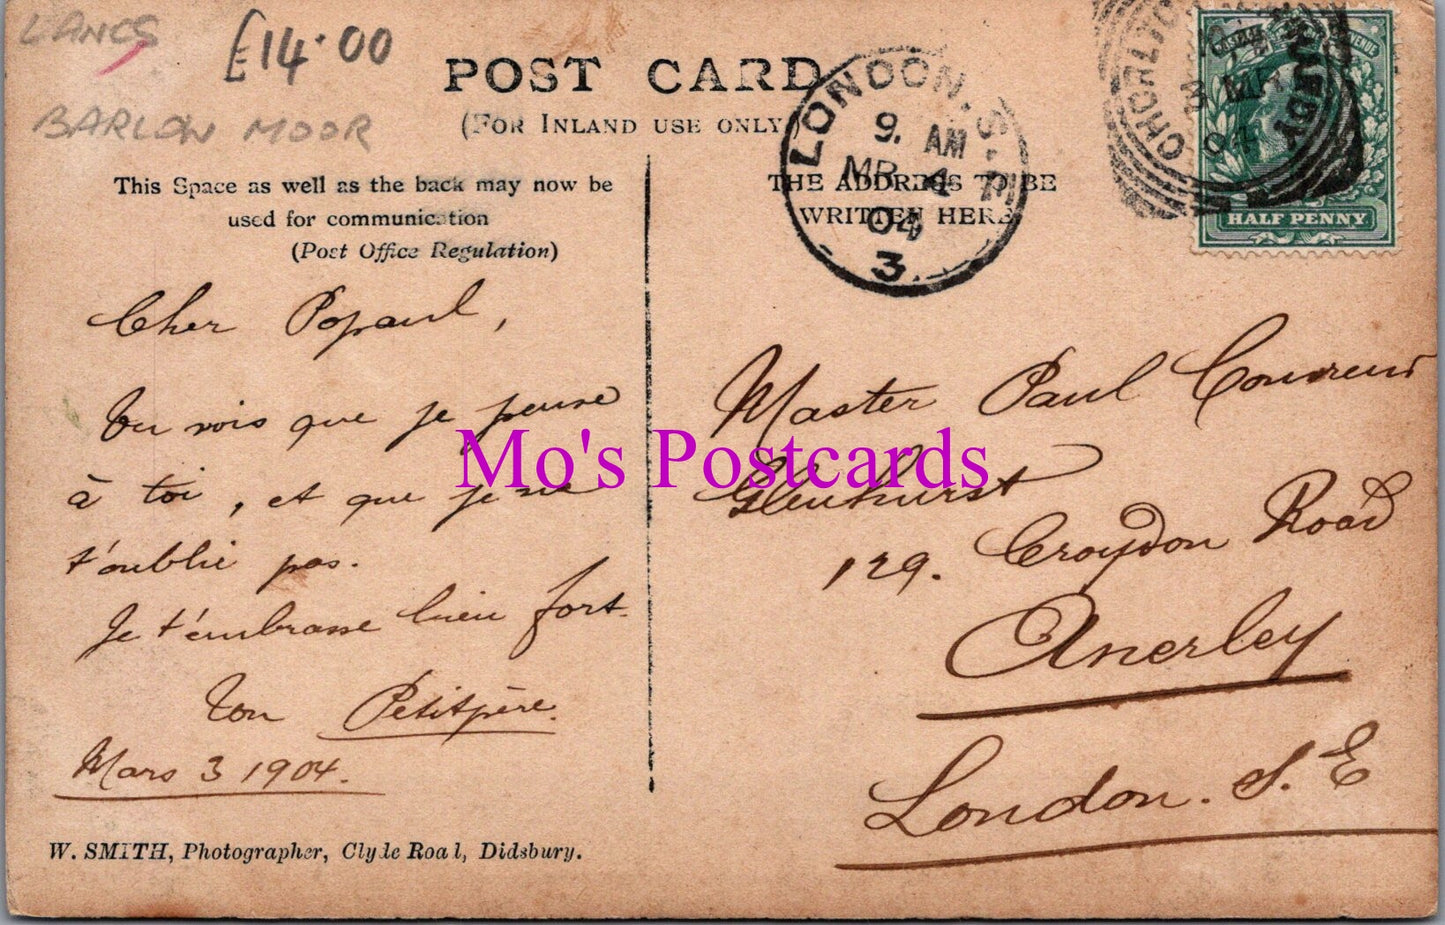 LANCS
£14.00
BARLOW MOOR
POST CARD
(FOR INLAND USE ONLY
This Space as well as the back may now be
used for communication
(Post Office Regulation)
THE ADDRESS TO BE
WRITTEN HERE
LONDON. S. E.
9. AM
MR 4
04
3.
CHORLTON
HARDY
3 MR
04
HALF PENNY
Cher Popaul,
Tu vois que je pense
à toi, et que je ne
t'oublie pas.
Je t'embrasse bien fort.
Ton Petitpère.
Mars 3 1904.
Master Paul
Glenhurst
129. Croydon Road
Anerley
London. S.E
Mo's Postcards
W. SMITH, Photographer, Clyde Road, Didsbury.